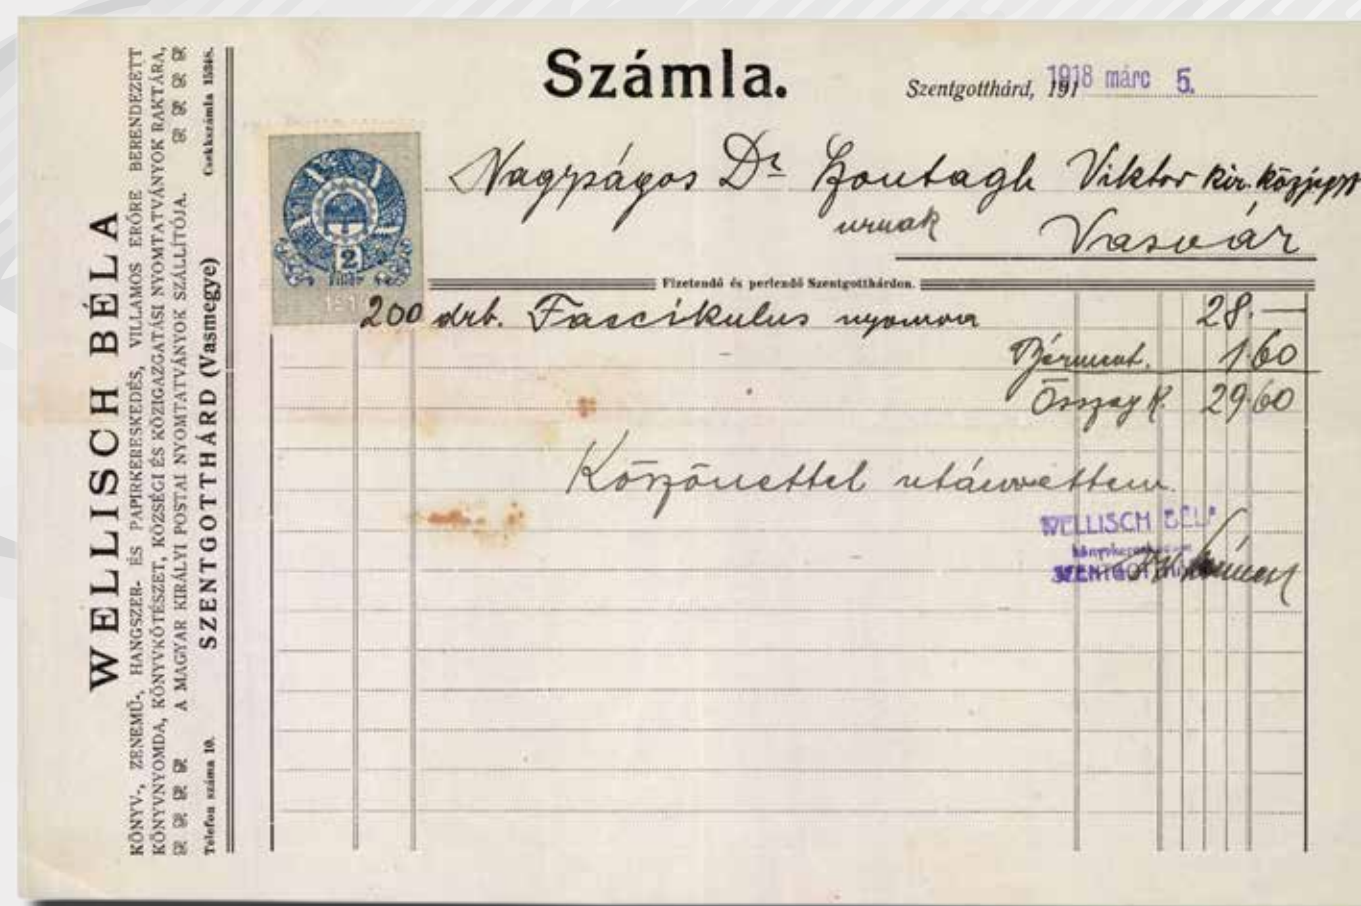 WELLISCH BÉLA
KÖNYV-, ZENEMŰ-, HANGSZER- ÉS PAPIRKERESKEDÉS, VILLAMOS ERŐRE BERENDEZETT
KÖNYVNYOMDA, KÖNYVKÖTÉSZET, KÖZSÉGI ÉS KÖZIGAZGATÁSI NYOMTATVÁNYOK RAKTÁRA,
A MAGYAR KIRÁLYI POSTAI NYOMTATVÁNYOK SZÁLLÍTÓJA.
Telefon száma 10. SZENTGOTTHÁRD (Vasmegye) Csekkszámla 15348.
Számla.
Szentgotthárd, 191 1918 márc 5.
Nagyságos Dr Zontagh Viktor kir. közjegyző
urnak Vasvár
2
fillér
Fizetendő és perlendő Szentgotthárdon.
200 drb. Fascikulus nyomva 28.—
Bérment. 1.60
Összag K. 29.60
Köszönettel utánvéttem
WELLISCH BÉLA
SZENTGOTTHÁRD